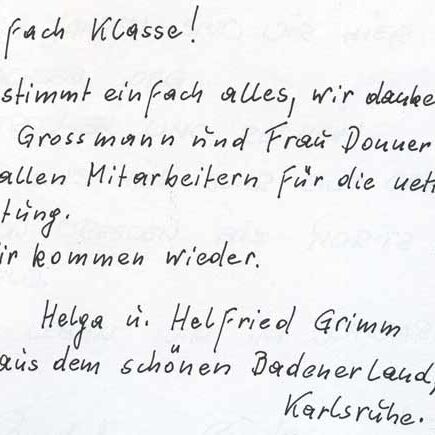 fach Klasse!
stimmt einfach alles, wir danke
Grossmann und Frau Donner
allen Mitarbeitern für die net
tung.
ir kommen wieder.
Helga u. Helfried Grimm
aus dem schönen Badenerland,
Karlsruhe.